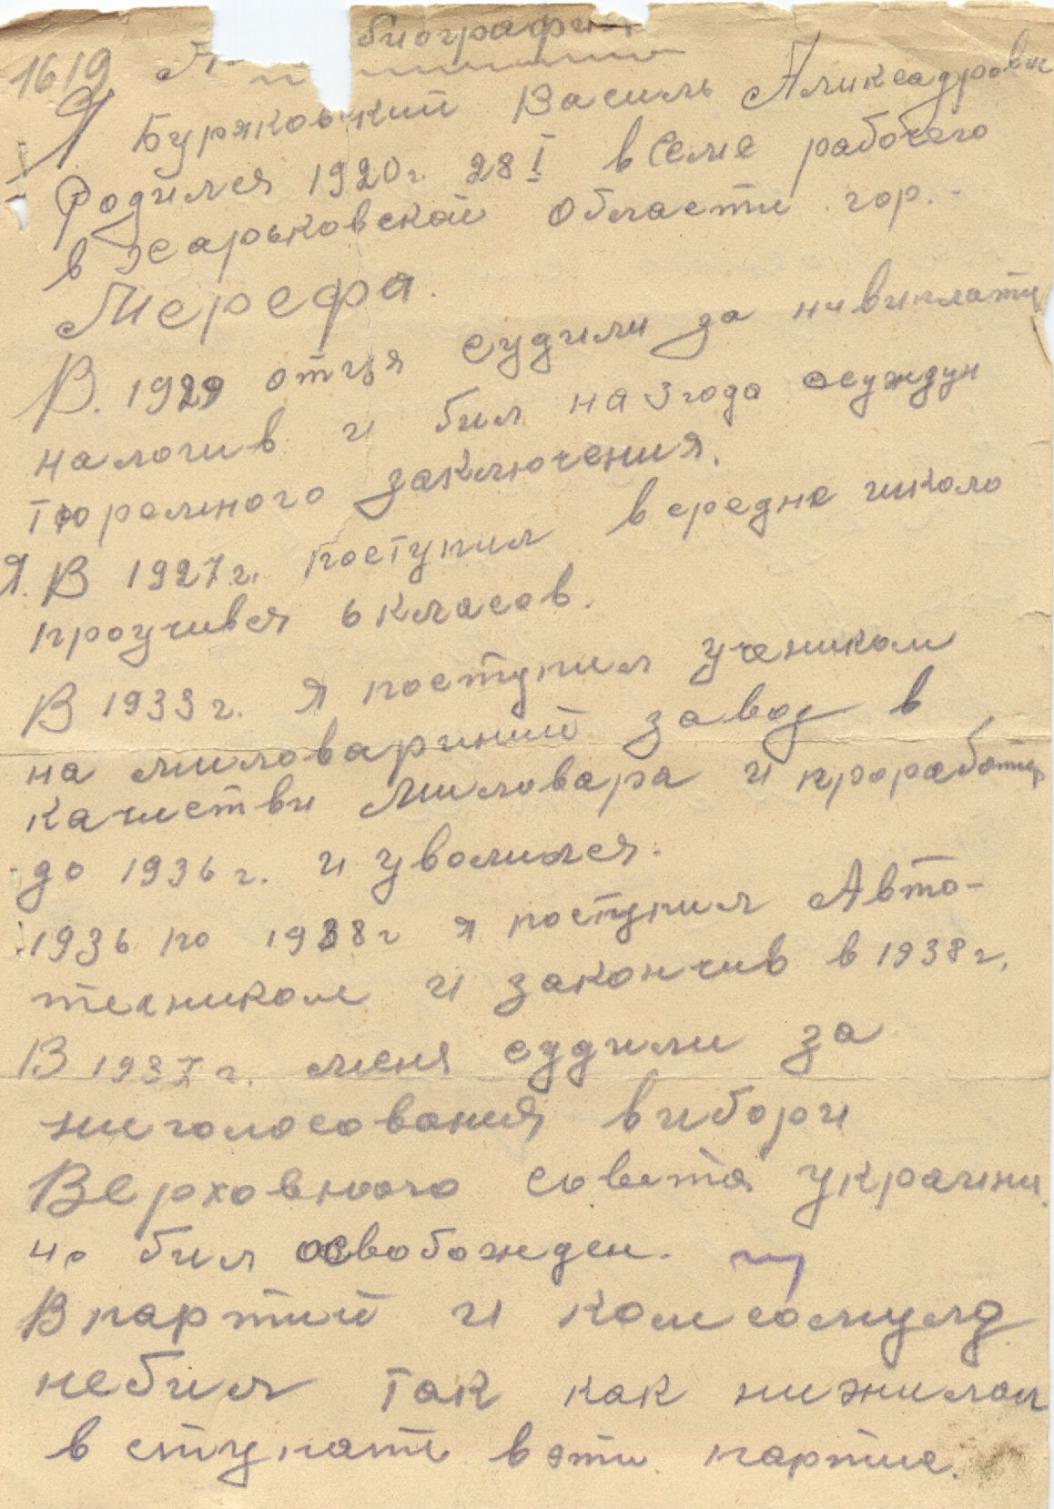 биография
1619
Я Буряковский Василь Аликсадрович
Родился 1920г. 28 I в семе рабочего
в харьковской области гор.
Мерефа.
В. 1929 отця судили за нивиплати
налогив и бил на 3 года осуждун
тюремного заключения.
Я. В 1927г. поступил в средне школо
проучився 6 класов.
В 1933г. я поступил учеником
на миловариний завод в
качистви миловара и проработав
до 1936г. и уволился.
1936 по 1938г я поступил Авто-
техником и закончив в 1938г.
В 1937г. меня судили за
ниголосования вибори
Верховного совета украини.
но бил освобожден.
В партий и комсомулд
небил так как нижилал
в ступати в эти партие.